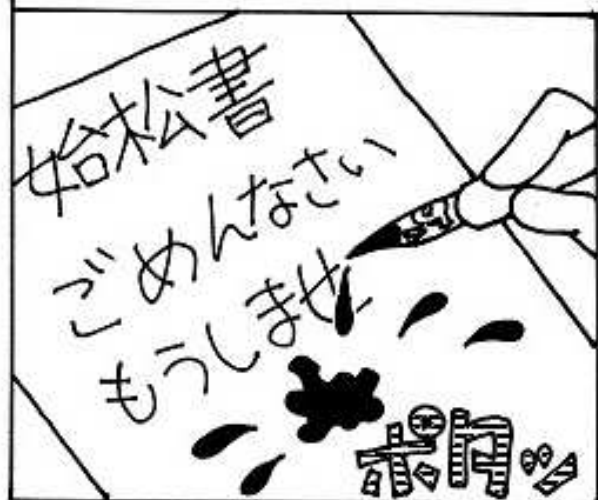 始松書
ごめんなさい
もうしませ
ポタッ